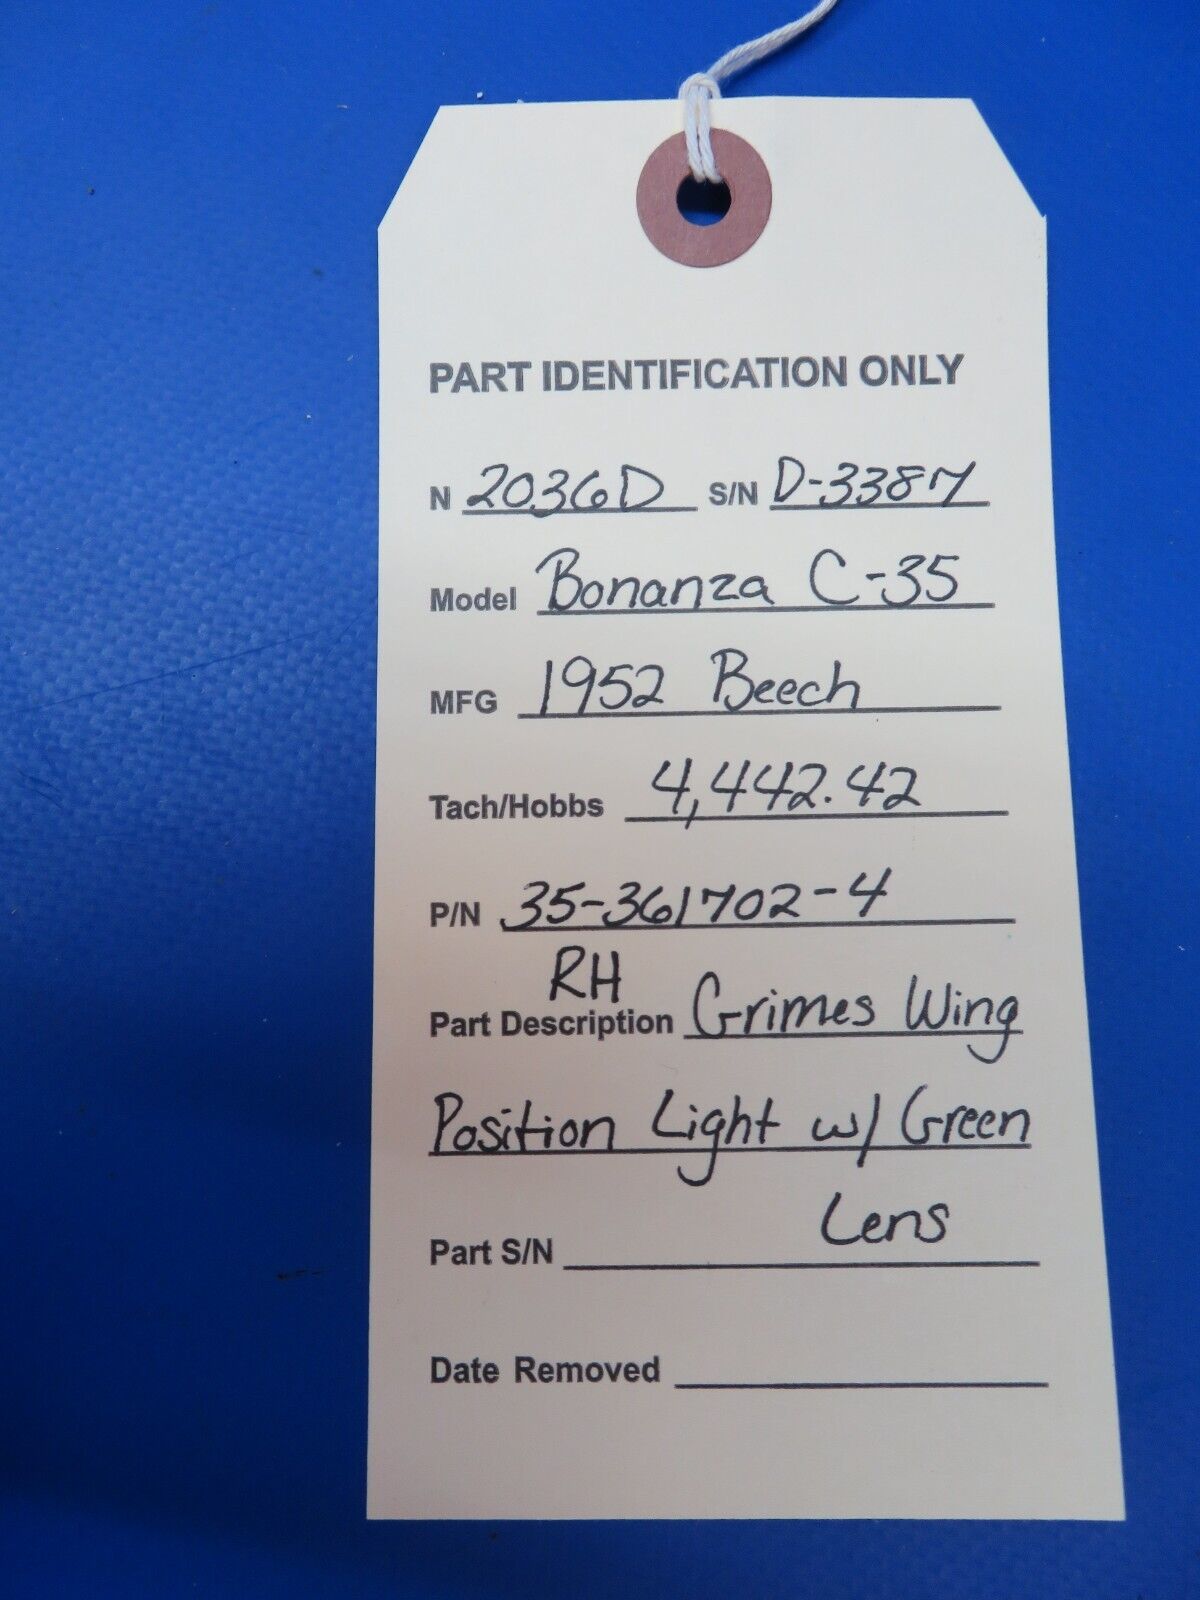 PART IDENTIFICATION ONLY
N 2036D S/N D-3387
Model Bonanza C-35
MFG 1952 Beech
Tach/Hobbs 4,442.42
P/N 35-361702-4
RH
Part Description Grimes Wing
Position Light w/ Green
Lens
Part S/N
Date Removed